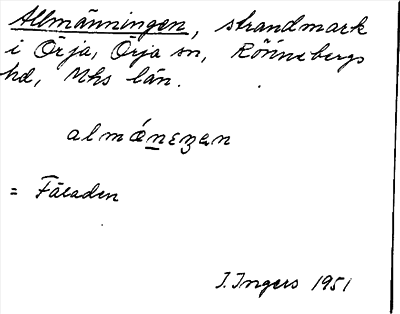 Allmänningen, strandmark
i Örja, Örja sn, Rönnebergs
hd, Mhs län.
= Fäladen
I. Ingers 1951